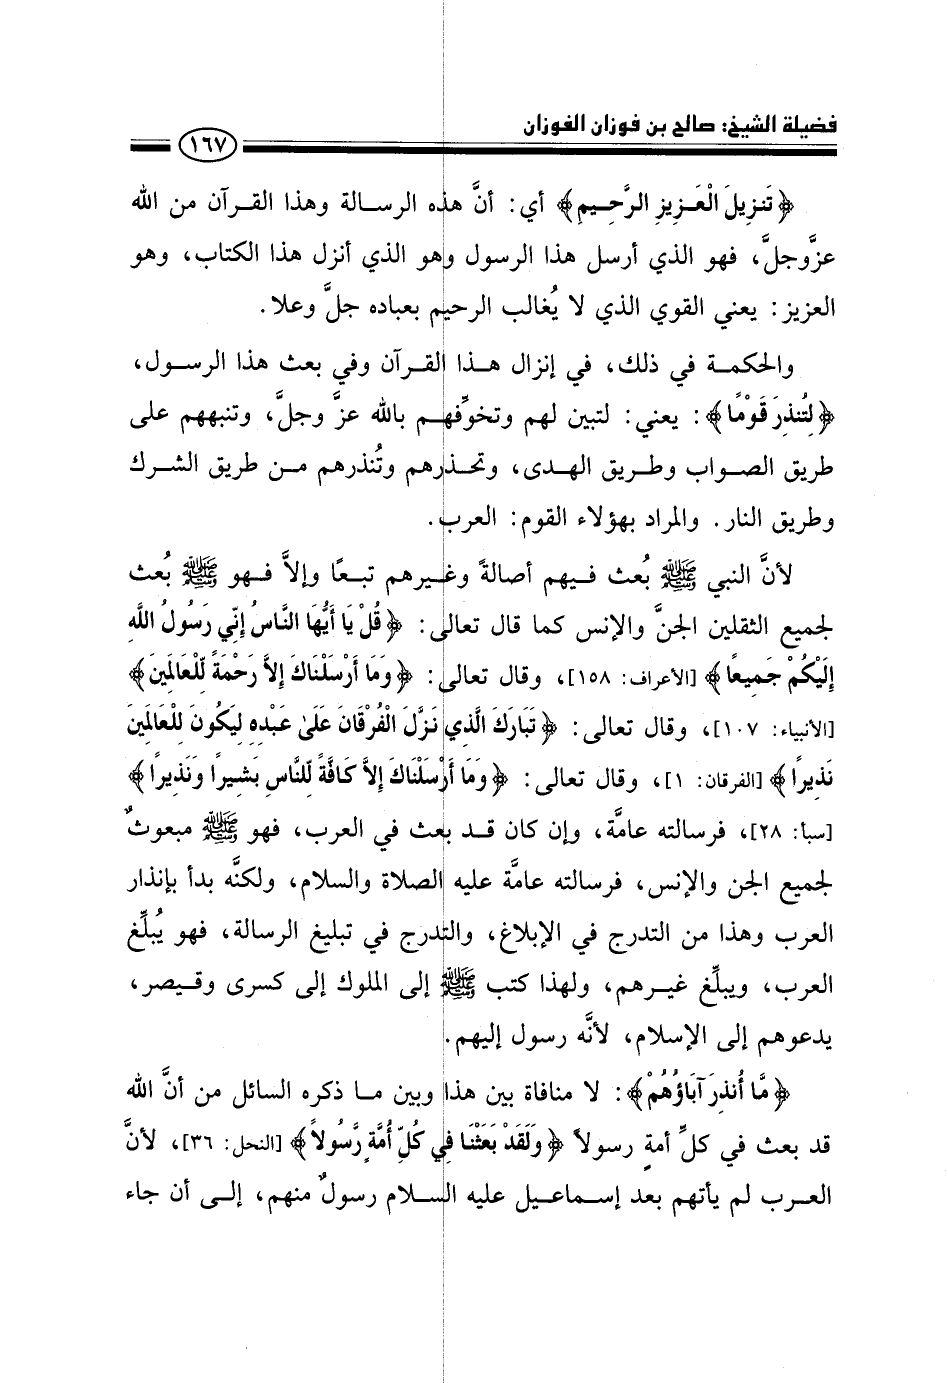 فضيلة الشيخ: صالح بن فوزان الفوزان
١٦٧
﴿تَنزِيلَ الْعَزِيزِ الرَّحِيمِ﴾ أي: أنَّ هذه الرسالة وهذا القرآن من الله
عزَّوجلَّ، فهو الذي أرسل هذا الرسول وهو الذي أنزل هذا الكتاب، وهو
العزيز: يعني القوي الذي لا يُغالب الرحيم بعباده جلَّ وعلا.
والحكمة في ذلك، في إنزال هذا القرآن وفي بعث هذا الرسول،
﴿لِتُنذِرَ قَوْمًا﴾: يعني: لتبين لهم وتخوِّفهم بالله عزَّ وجلَّ، وتنبههم على
طريق الصواب وطريق الهدى، وتحذرهم وتُنذرهم من طريق الشرك
وطريق النار. والمراد بهؤلاء القوم: العرب.
لأنَّ النبي ﷺ بُعث فيهم أصالةً وغيرهم تبعًا وإلاَّ فهو ﷺ بُعث
لجميع الثقلين الجنَّ والإنس كما قال تعالى: ﴿قُلْ يَا أَيُّهَا النَّاسُ إِنِّي رَسُولُ اللَّهِ
إِلَيْكُمْ جَمِيعًا﴾ [الأعراف: ١٥٨]، وقال تعالى: ﴿وَمَا أَرْسَلْنَاكَ إِلاَّ رَحْمَةً لِّلْعَالَمِينَ﴾
[الأنبياء: ١٠٧]، وقال تعالى: ﴿تَبَارَكَ الَّذِي نَزَّلَ الْفُرْقَانَ عَلَىٰ عَبْدِهِ لِيَكُونَ لِلْعَالَمِينَ
نَذِيرًا﴾ [الفرقان: ١]، وقال تعالى: ﴿وَمَا أَرْسَلْنَاكَ إِلاَّ كَافَّةً لِّلنَّاسِ بَشِيرًا وَنَذِيرًا﴾
[سبأ: ٢٨]، فرسالته عامَّة، وإن كان قد بعث في العرب، فهو ﷺ مبعوثٌ
لجميع الجن والإنس، فرسالته عامَّة عليه الصلاة والسلام، ولكنَّه بدأ بإنذار
العرب وهذا من التدرج في الإبلاغ، والتدرج في تبليغ الرسالة، فهو يُبلِّغ
العرب، ويبلِّغ غيرهم، ولهذا كتب ﷺ إلى الملوك إلى كسرى وقيصر،
يدعوهم إلى الإسلام، لأنَّه رسول إليهم.
﴿مَّا أُنذِرَ آبَاؤُهُمْ﴾: لا منافاة بين هذا وبين ما ذكره السائل من أنَّ الله
قد بعث في كلِّ أمةٍ رسولاً ﴿وَلَقَدْ بَعَثْنَا فِي كُلِّ أُمَّةٍ رَّسُولاً﴾ [النحل: ٣٦]، لأنَّ
العرب لم يأتهم بعد إسماعيل عليه السلام رسولٌ منهم، إلى أن جاء